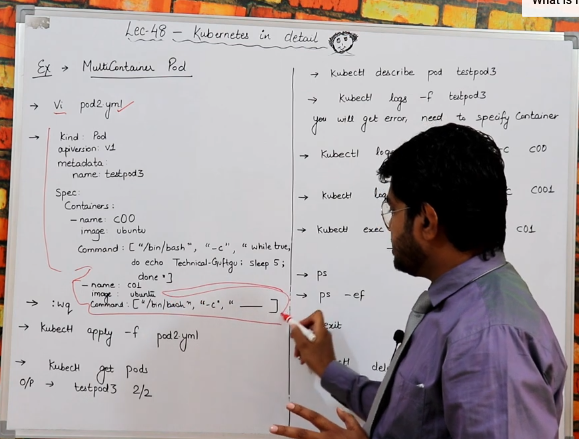 What is
Lec-48 — Kubernetes in detail
Ex → MultiContainer Pod
→ Vi pod2.yml
→ kind: Pod
apiversion: V1
metadata:
name: testpod3
Spec:
Containers:
- name: C00
image: ubuntu
Command: ["/bin/bash", "-c", "while true;
do echo Technical-Guftgu; sleep 5;
done"]
- name: C01
image: ubuntu
Command: ["/bin/bash", "-c", " ——— ]
→ :wq
→ Kubectl apply -f pod2.yml
→ Kubectl get pods
O/P → testpod3 2/2
→ Kubectl describe pod testpod3
→ Kubectl logs -f testpod3
you will get error, need to specify Container
→ Kubectl C00
→ Kubectl C001
→ Kubectl exec C01
→ ps
→ ps -ef
exit